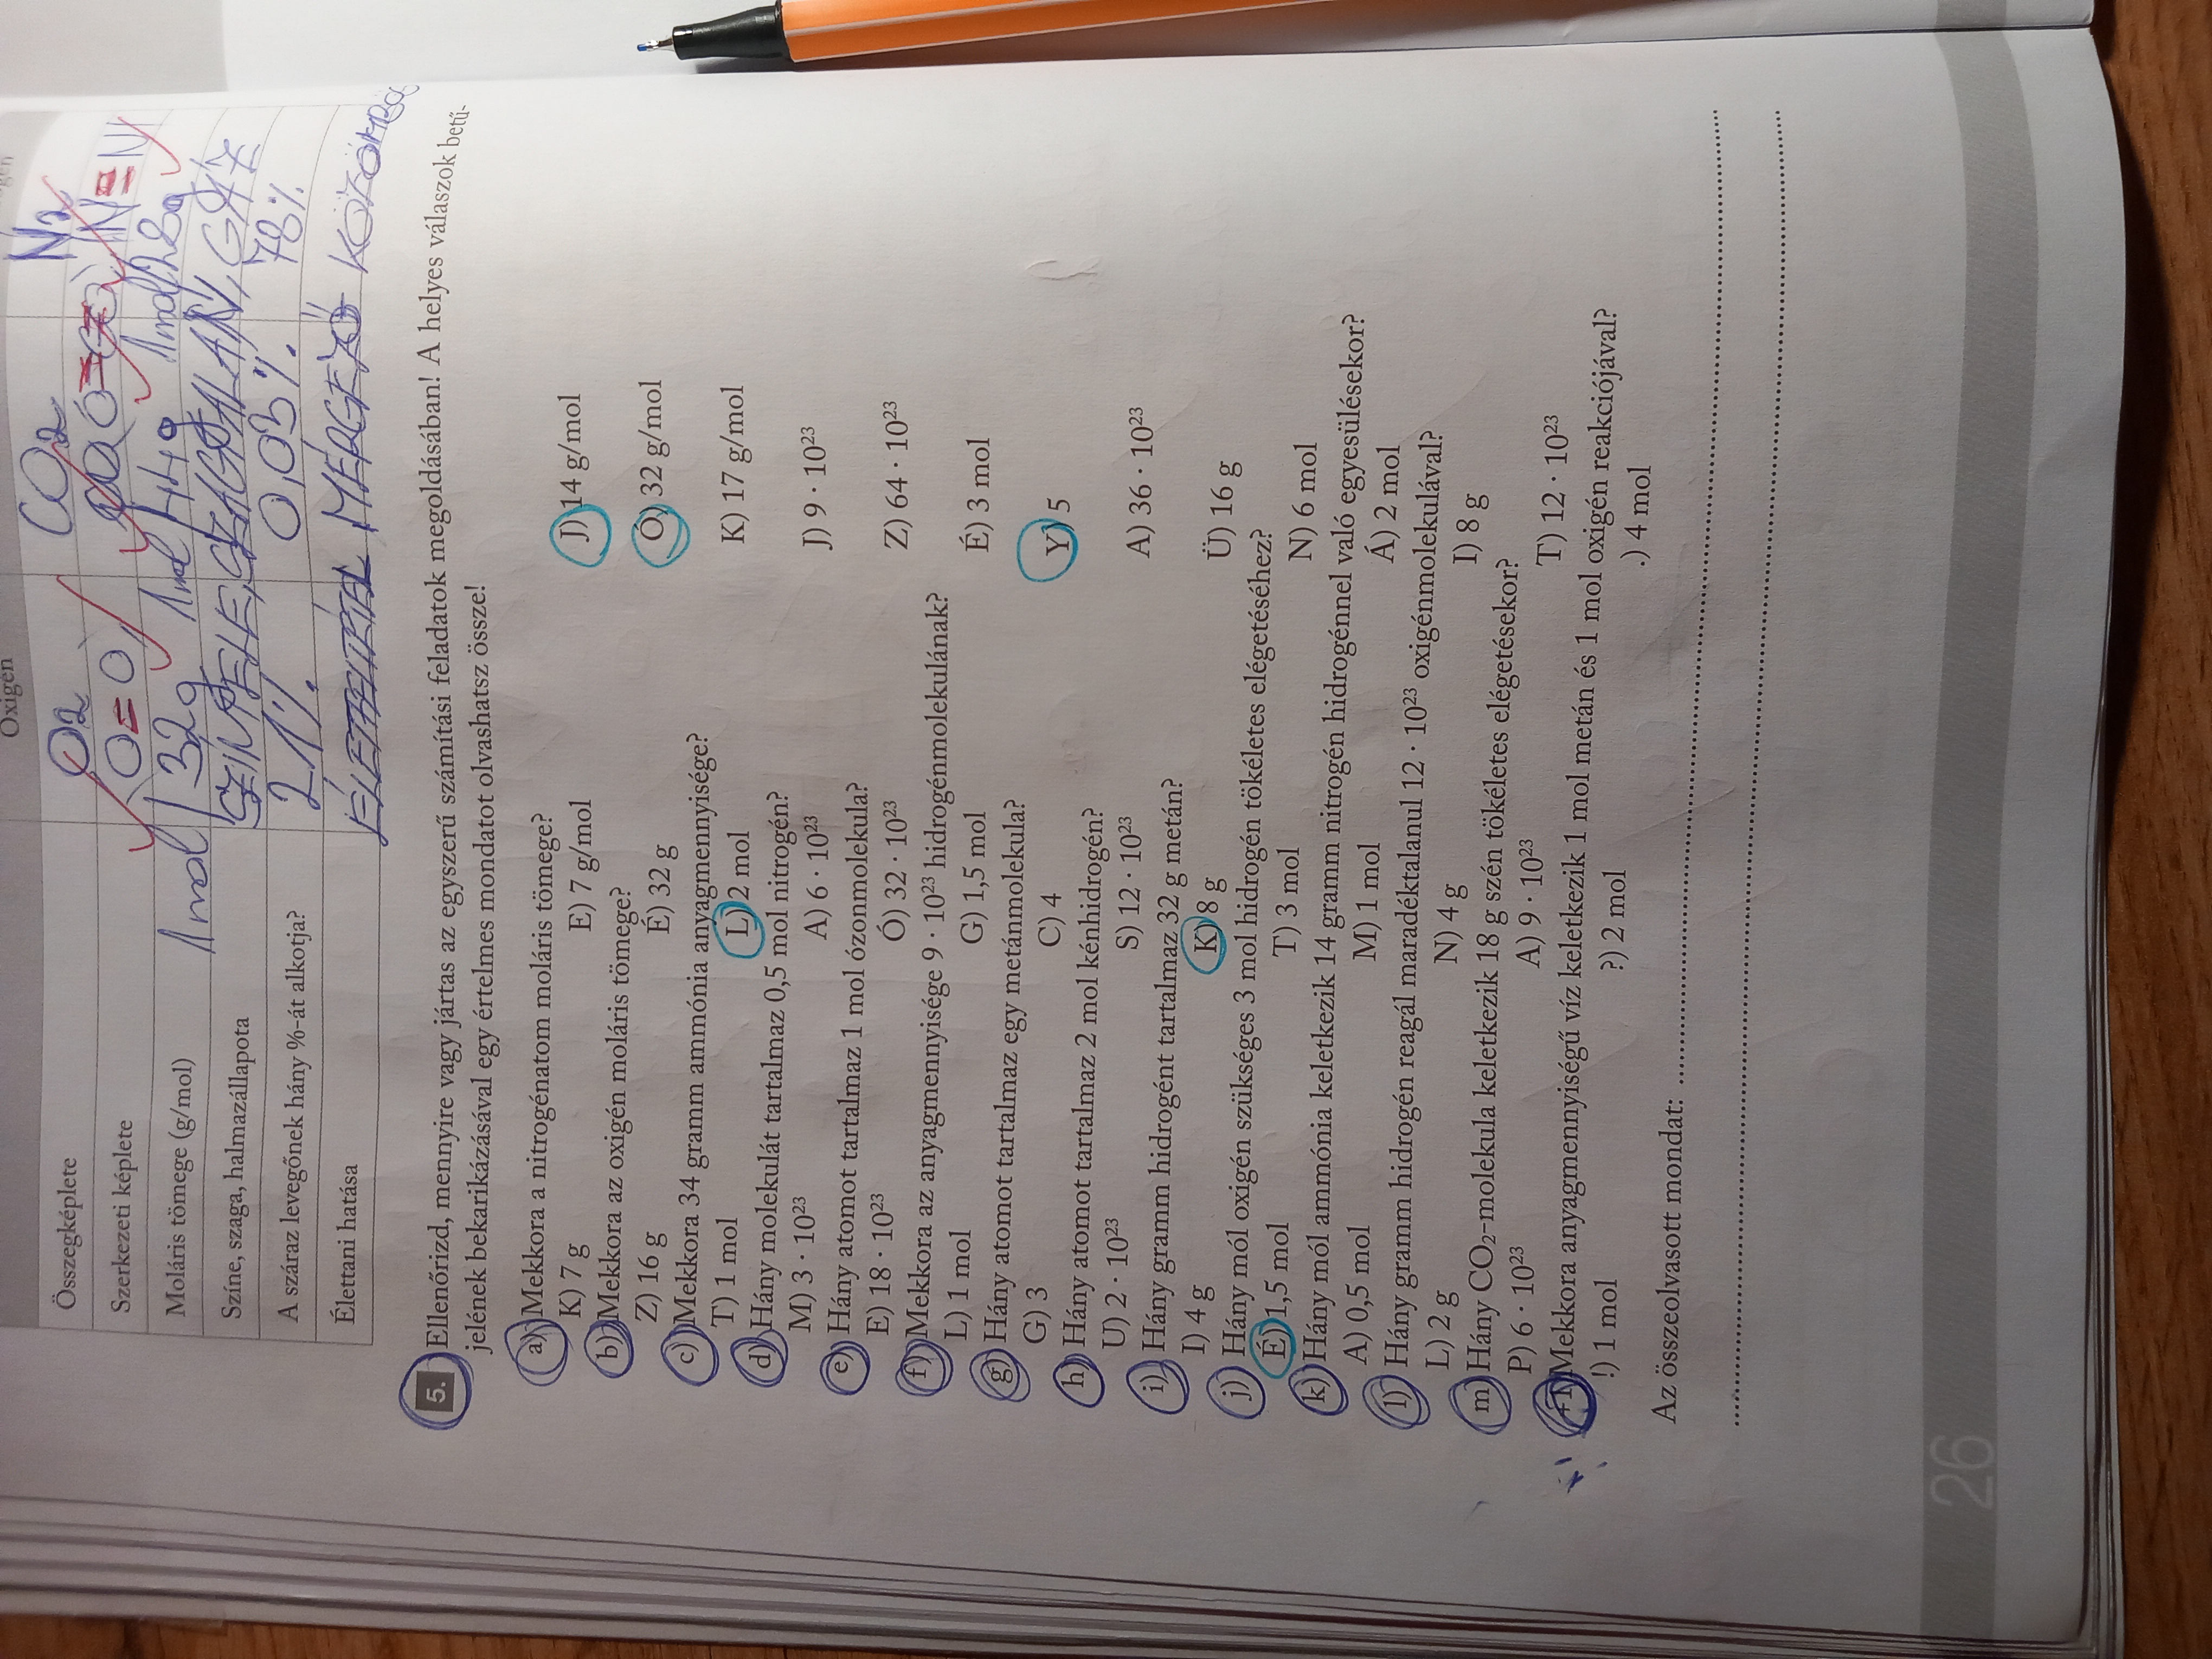 Oxigén
Összegképlete O2 CO2 N2
Szerkezeti képlete O=O N≡N
Moláris tömege (g/mol) 1 mol 32g 1 mol 44g 1 mol 28g
Színe, szaga, halmazállapota SZÍNTELEN, SZAGTALAN, GÁZ
A száraz levegőnek hány %-át alkotja? 21%. 0,03%. 78%.
Élettani hatása MÉRGEZŐ KÖZÖMBÖS
5. Ellenőrizd, mennyire vagy jártas az egyszerű számítási feladatok megoldásában! A helyes válaszok betű-
jelének bekarikázásával egy értelmes mondatot olvashatsz össze!
a) Mekkora a nitrogénatom moláris tömege?
K) 7 g E) 7 g/mol J) 14 g/mol
b) Mekkora az oxigén moláris tömege?
Z) 16 g É) 32 g Ó) 32 g/mol
c) Mekkora 34 gramm ammónia anyagmennyisége?
T) 1 mol L) 2 mol K) 17 g/mol
d) Hány molekulát tartalmaz 0,5 mol nitrogén?
M) 3 · 10²³ A) 6 · 10²³ J) 9 · 10²³
e) Hány atomot tartalmaz 1 mol ózonmolekula?
E) 18 · 10²³ Ó) 32 · 10²³ Z) 64 · 10²³
f) Mekkora az anyagmennyisége 9 · 10²³ hidrogénmolekulának?
L) 1 mol G) 1,5 mol É) 3 mol
g) Hány atomot tartalmaz egy metánmolekula?
G) 3 C) 4 Y) 5
h) Hány atomot tartalmaz 2 mol kénhidrogén?
U) 2 · 10²³ S) 12 · 10²³ A) 36 · 10²³
i) Hány gramm hidrogént tartalmaz 32 g metán?
I) 4 g K) 8 g Ü) 16 g
j) Hány mól oxigén szükséges 3 mol hidrogén tökéletes elégetéséhez?
É) 1,5 mol T) 3 mol N) 6 mol
k) Hány mól ammónia keletkezik 14 gramm nitrogén hidrogénnel való egyesülésekor?
A) 0,5 mol M) 1 mol Á) 2 mol
l) Hány gramm hidrogén reagál maradéktalanul 12 · 10²³ oxigénmolekulával?
L) 2 g N) 4 g I) 8 g
m) Hány CO₂-molekula keletkezik 18 g szén tökéletes elégetésekor?
P) 6 · 10²³ A) 9 · 10²³ T) 12 · 10²³
+1) Mekkora anyagmennyiségű víz keletkezik 1 mol metán és 1 mol oxigén reakciójával?
!) 1 mol ?) 2 mol .) 4 mol
Az összeolvasott mondat:
26